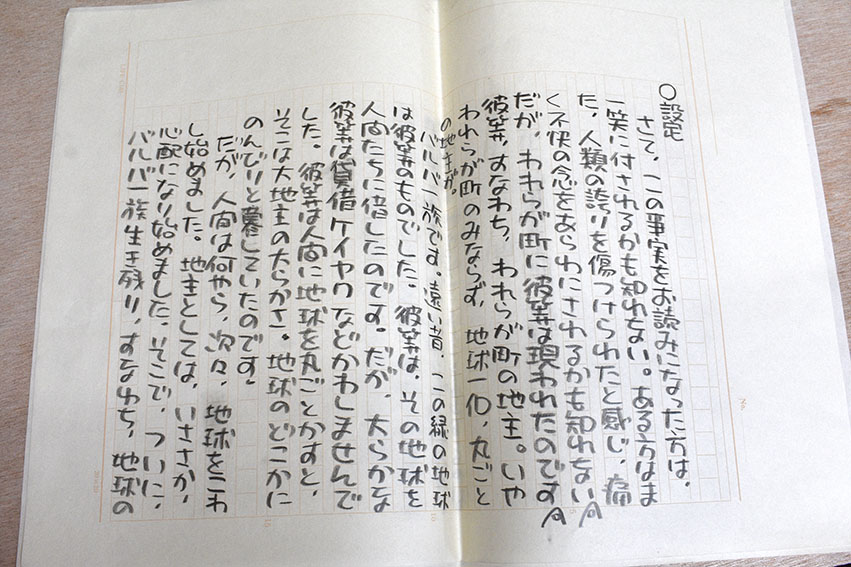 ○設定
さて、この事実をお読みになった方は、
一笑に付されるかも知れない。ある方はま
た、人類の誇りを傷つけられたと感じ、痛
く不快の念をあらわにされるかも知れない。
だが、われらが町に彼等は現われたのです。
彼等、すなわち、われらが町の地主。いや
われらが町のみならず、地球一個、丸ごと
の地主が。
バルバ一族です。遠い昔、この緑の地球
は彼等のものでした。彼等は、その地球を
人間たちに借したのです。だが、大らかな
彼等は貸借ケイヤクなどかわしませんで
した。彼等は人間に地球を丸ごとかすと、
そこは大地主の大らかさ。地球のどこかに
のんびりと暮していたのです。
だが、人間は何やら、次々、地球をこわ
し始めました。地主としては、いささか、
心配になり始めました。そこで、ついに、
バルバ一族生き残り、すなわち、地球の